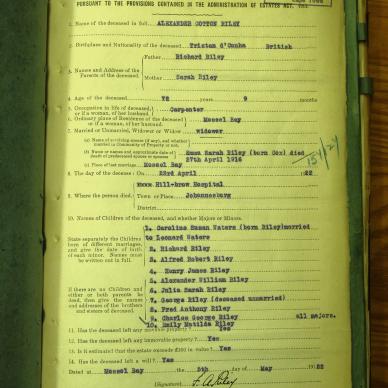 PURSUANT TO THE PROVISIONS CONTAINED IN THE ADMINISTRATION OF ESTATES ACT, 1913.
1. Name of the deceased in full ALEXANDER COTTON RILEY
2. Birthplace and Nationality of the deceased Tristan d'Cunha British
3. Names and Address of the Parents of the deceased.
Father Richard Riley
Mother Sarah Riley
4. Age of the deceased 78 years 9 months
5. Occupation in life of deceased, or if a woman, of her husband Carpenter
6. Ordinary place of Residence of the deceased or if a woman, of her husband Mossel Bay
7. Married or Unmarried, Widower or Widow widower
(a) Name of surviving spouse (if any), and whether married in Community of Property or not.
(b) Name or names, and approximate date of death of predeceased spouse or spouses Emma Sarah Riley (born Cox) died 27th April 1916
(c) Place of last marriage Mossel Bay
8. The day of the decease: On 23rd April 1922
9. Where the person died.
House Hill-brow Hospital
Town or Place Johannesburg
District
10. Names of Children of the deceased, and whether Majors or Minors.
State separately the Children born of different marriages, and give the date of birth of each minor. Names must be written out in full.
If there are no Children and either or both parents be dead, then give the names and addresses of the brothers and sisters of deceased.
1. Caroline Susan Waters (born Riley) married to Leonard Waters
2. Richard Riley
3. Alfred Robert Riley
4. Henry James Riley
5. Alexander William Riley
6. Julia Sarah Riley
7. George Riley (deceased unmarried)
8. Fred Anthony Riley
9. Charles George Riley all majors.
10. Emily Matilda Riley
11. Has the deceased left any movable property? Yes
12. Has the deceased left any immovable property? Yes
13. Is it estimated that the estate exceeds £100 in value? Yes
14. Has the deceased left a will? Yes
Dated at Mossel Bay the 5th day of May 1922
(Signature)